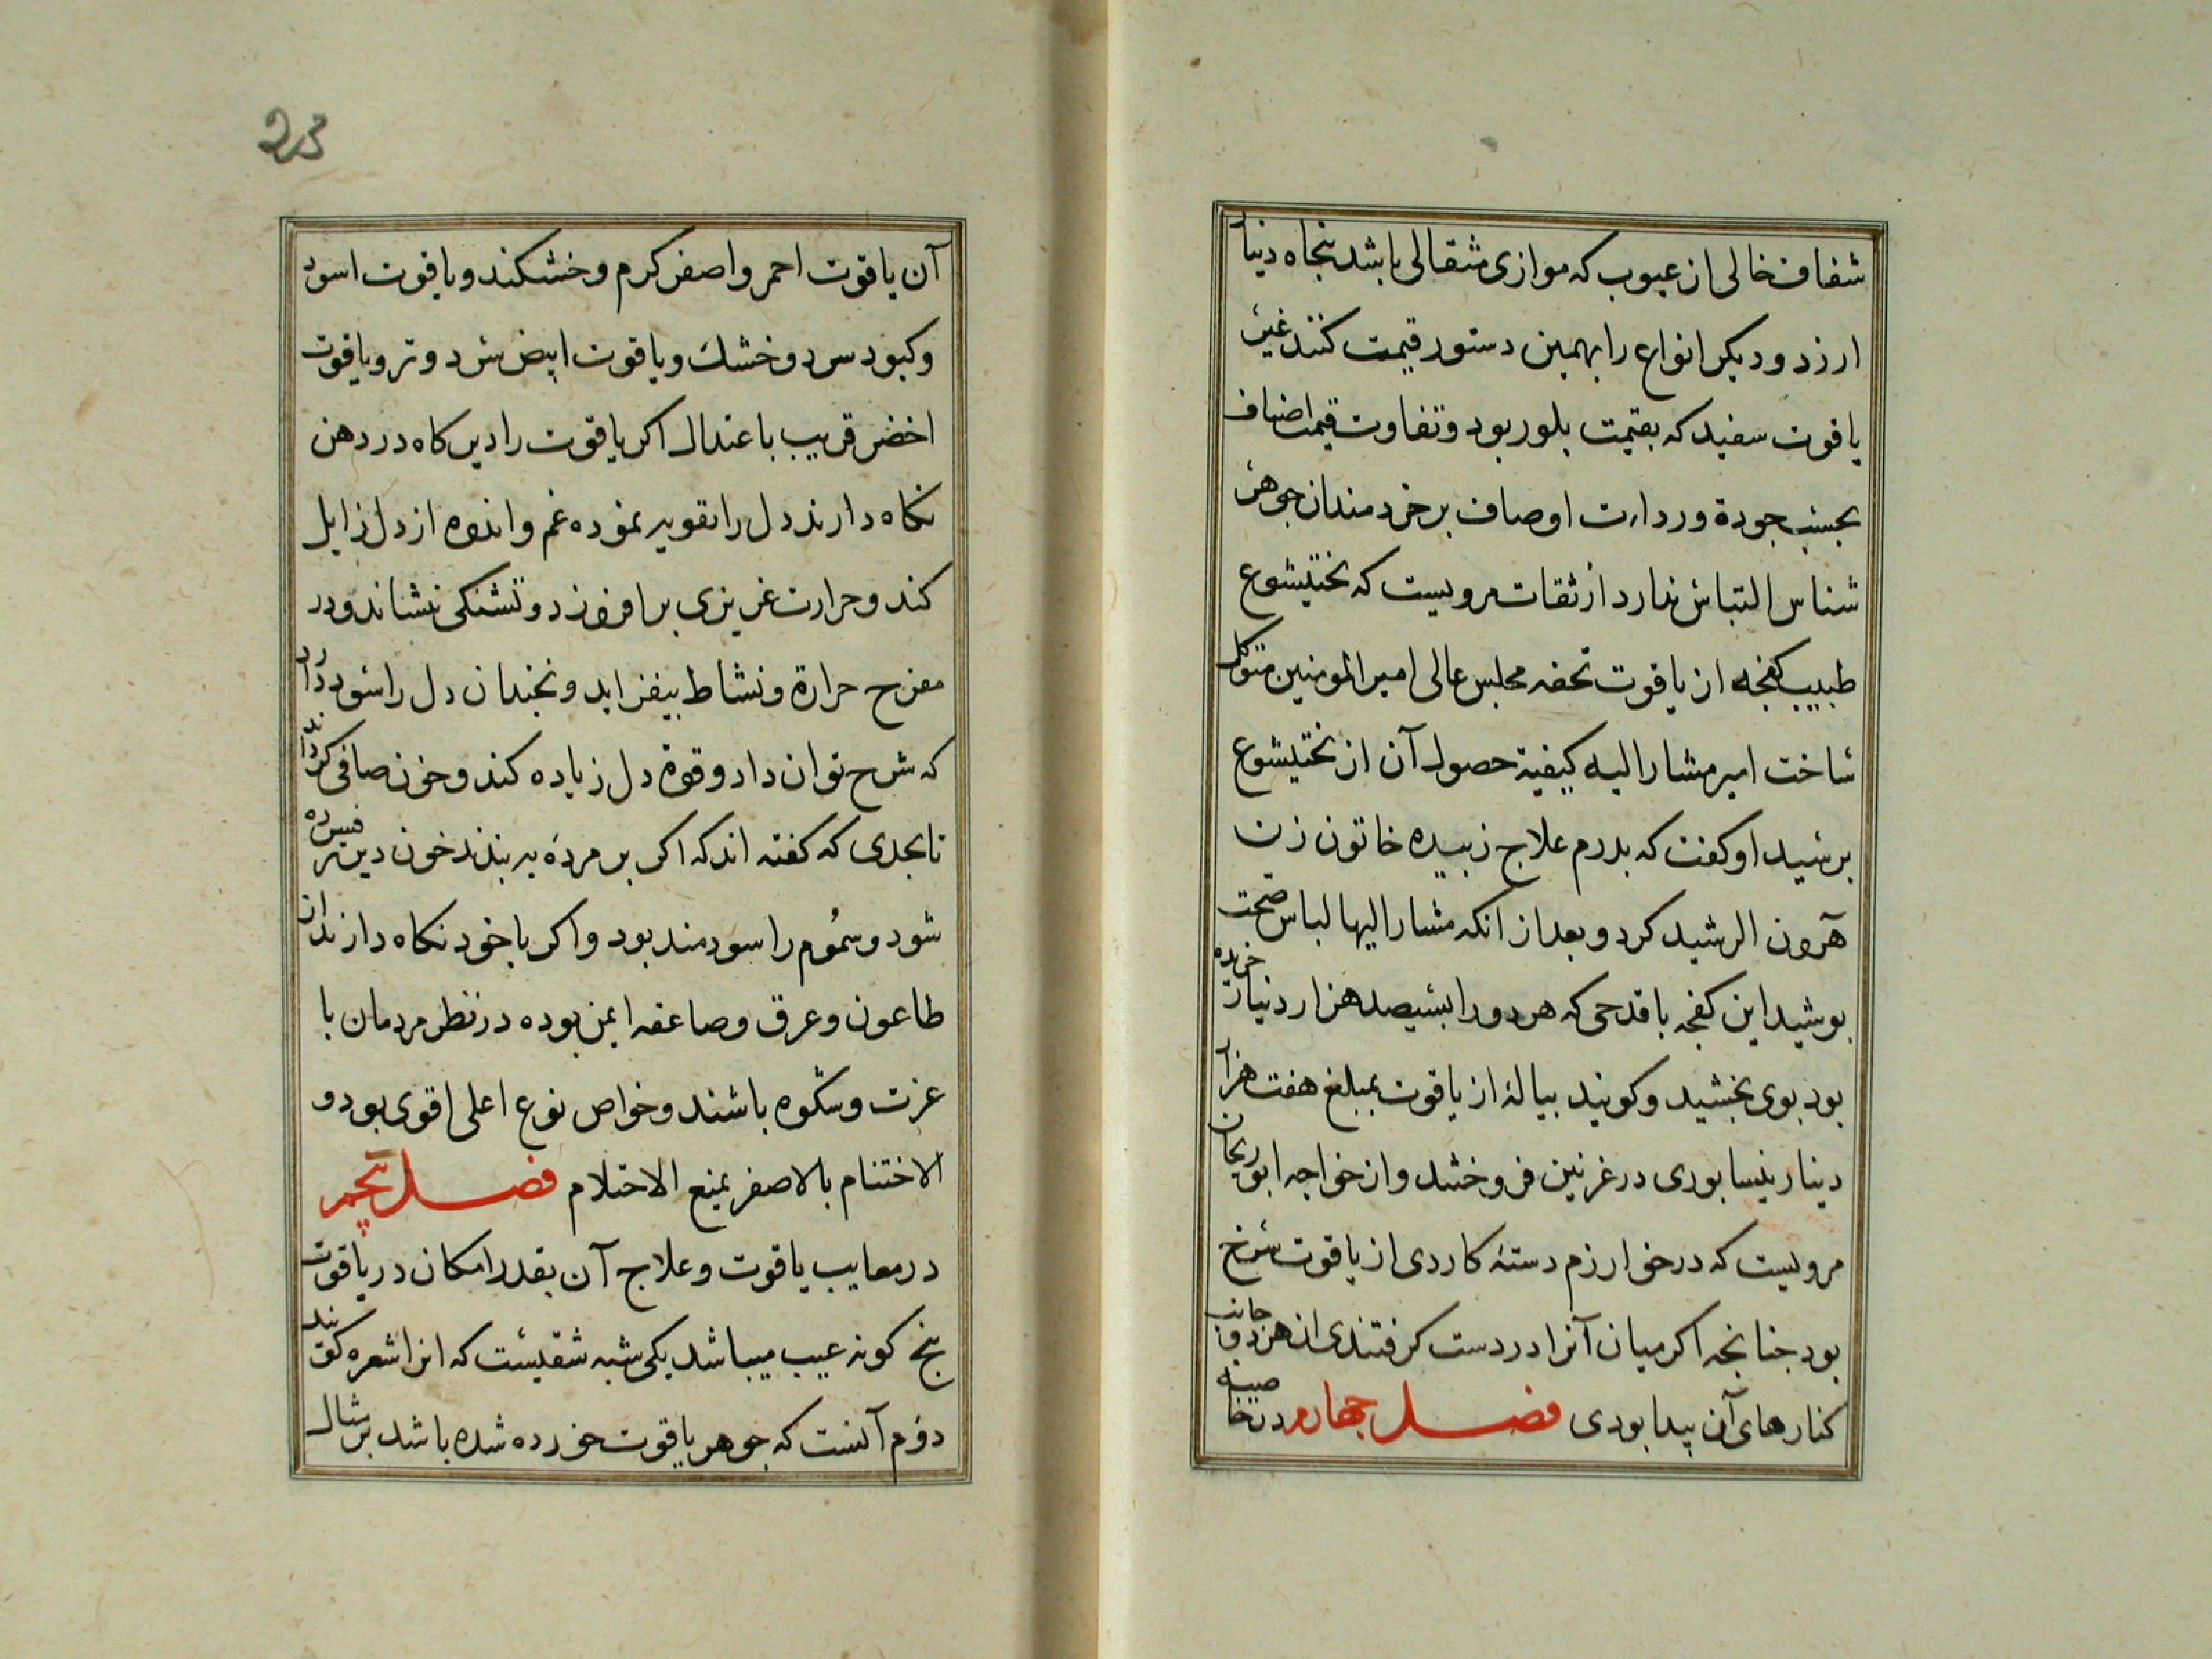 شفاف خالی از عیوب که موازی مثقالی باشد بنجاه دینار
ارزد و دیکر انواع را بهمین دستور قیمت کنند غیر
یاقوت سفید که بقیمت بلور بود و تفاوت قیمت اضاف
بحسب جودة و ردارت اوصاف بر خردمندان جوهر
شناس التباس ندارد از ثقات مرویست که بختیشوع
طبیب کفجه از یاقوت تحفه مجلس عالی امیر المومنین متوکل
ساخت امیر مشار الیه کیفیة حصول آن از بختیشوع
برسید او کفت که بدرم علاج زبیده خاتون زن
هرون الرشید کرد و بعد از انکه مشار الیها لباس صحت
بوشید این کفجه با قدحی که هر دو را بسیصد هزار دینار خریده
بود بوی بخشید و کویند بیالهٔ از یاقوت بمبلغ هفت هزار
دینار نیسابوری در غزنین فروختند و از خواجه ابو ریحان
مرویست که در خوارزم دستهٔ کاردی از یاقوت سرخ
بود جنانجه اکر میان آنرا در دست کرفتندی از هر دو جانب
کنارهای آن پیدا بودی فصل جهارم در خاصیه
23
آن یاقوت احمر و اصفر کرم و خشکند و یاقوت اسود
و کبود سرد و خشک و یاقوت ابیض سرد و تر و یاقوت
اخضر قریب باعتدال اکر یاقوت را دیر کاه در دهن
نکاه دارند دل را تقویه نموده غم و اندوه از دل زایل
کند و حرارت غریزی بر افروزد و تشنکی نشاند و در
مفرح حرارة و نشاط بیفزاید و نجندان دل را سود دارد
که شرح توان داد و قوة دل زیاده کند و خون صافی کرداند
تا بحدی که کفته اند که اکر بر مرده به بندند خون دیر فسرده
شود و سموم را سودمند بود و اکر با خود نکاه دارند از
طاعون و عرق و صاعقه ایمن بوده در نظر مردمان با
عزت و شکوه باشند و خواص نوع اعلی اقوی بود و
الاختنام بالاصفر یمنع الاحتلام فصل پنجم
در معایب یاقوت و علاج آن بقدر امکان در یاقوت
بنج کونه عیب میباشد یکی شبه شقیست که انرا شعره کویند
دوم آنست که جوهر یاقوت خورده شده باشد بر مثال